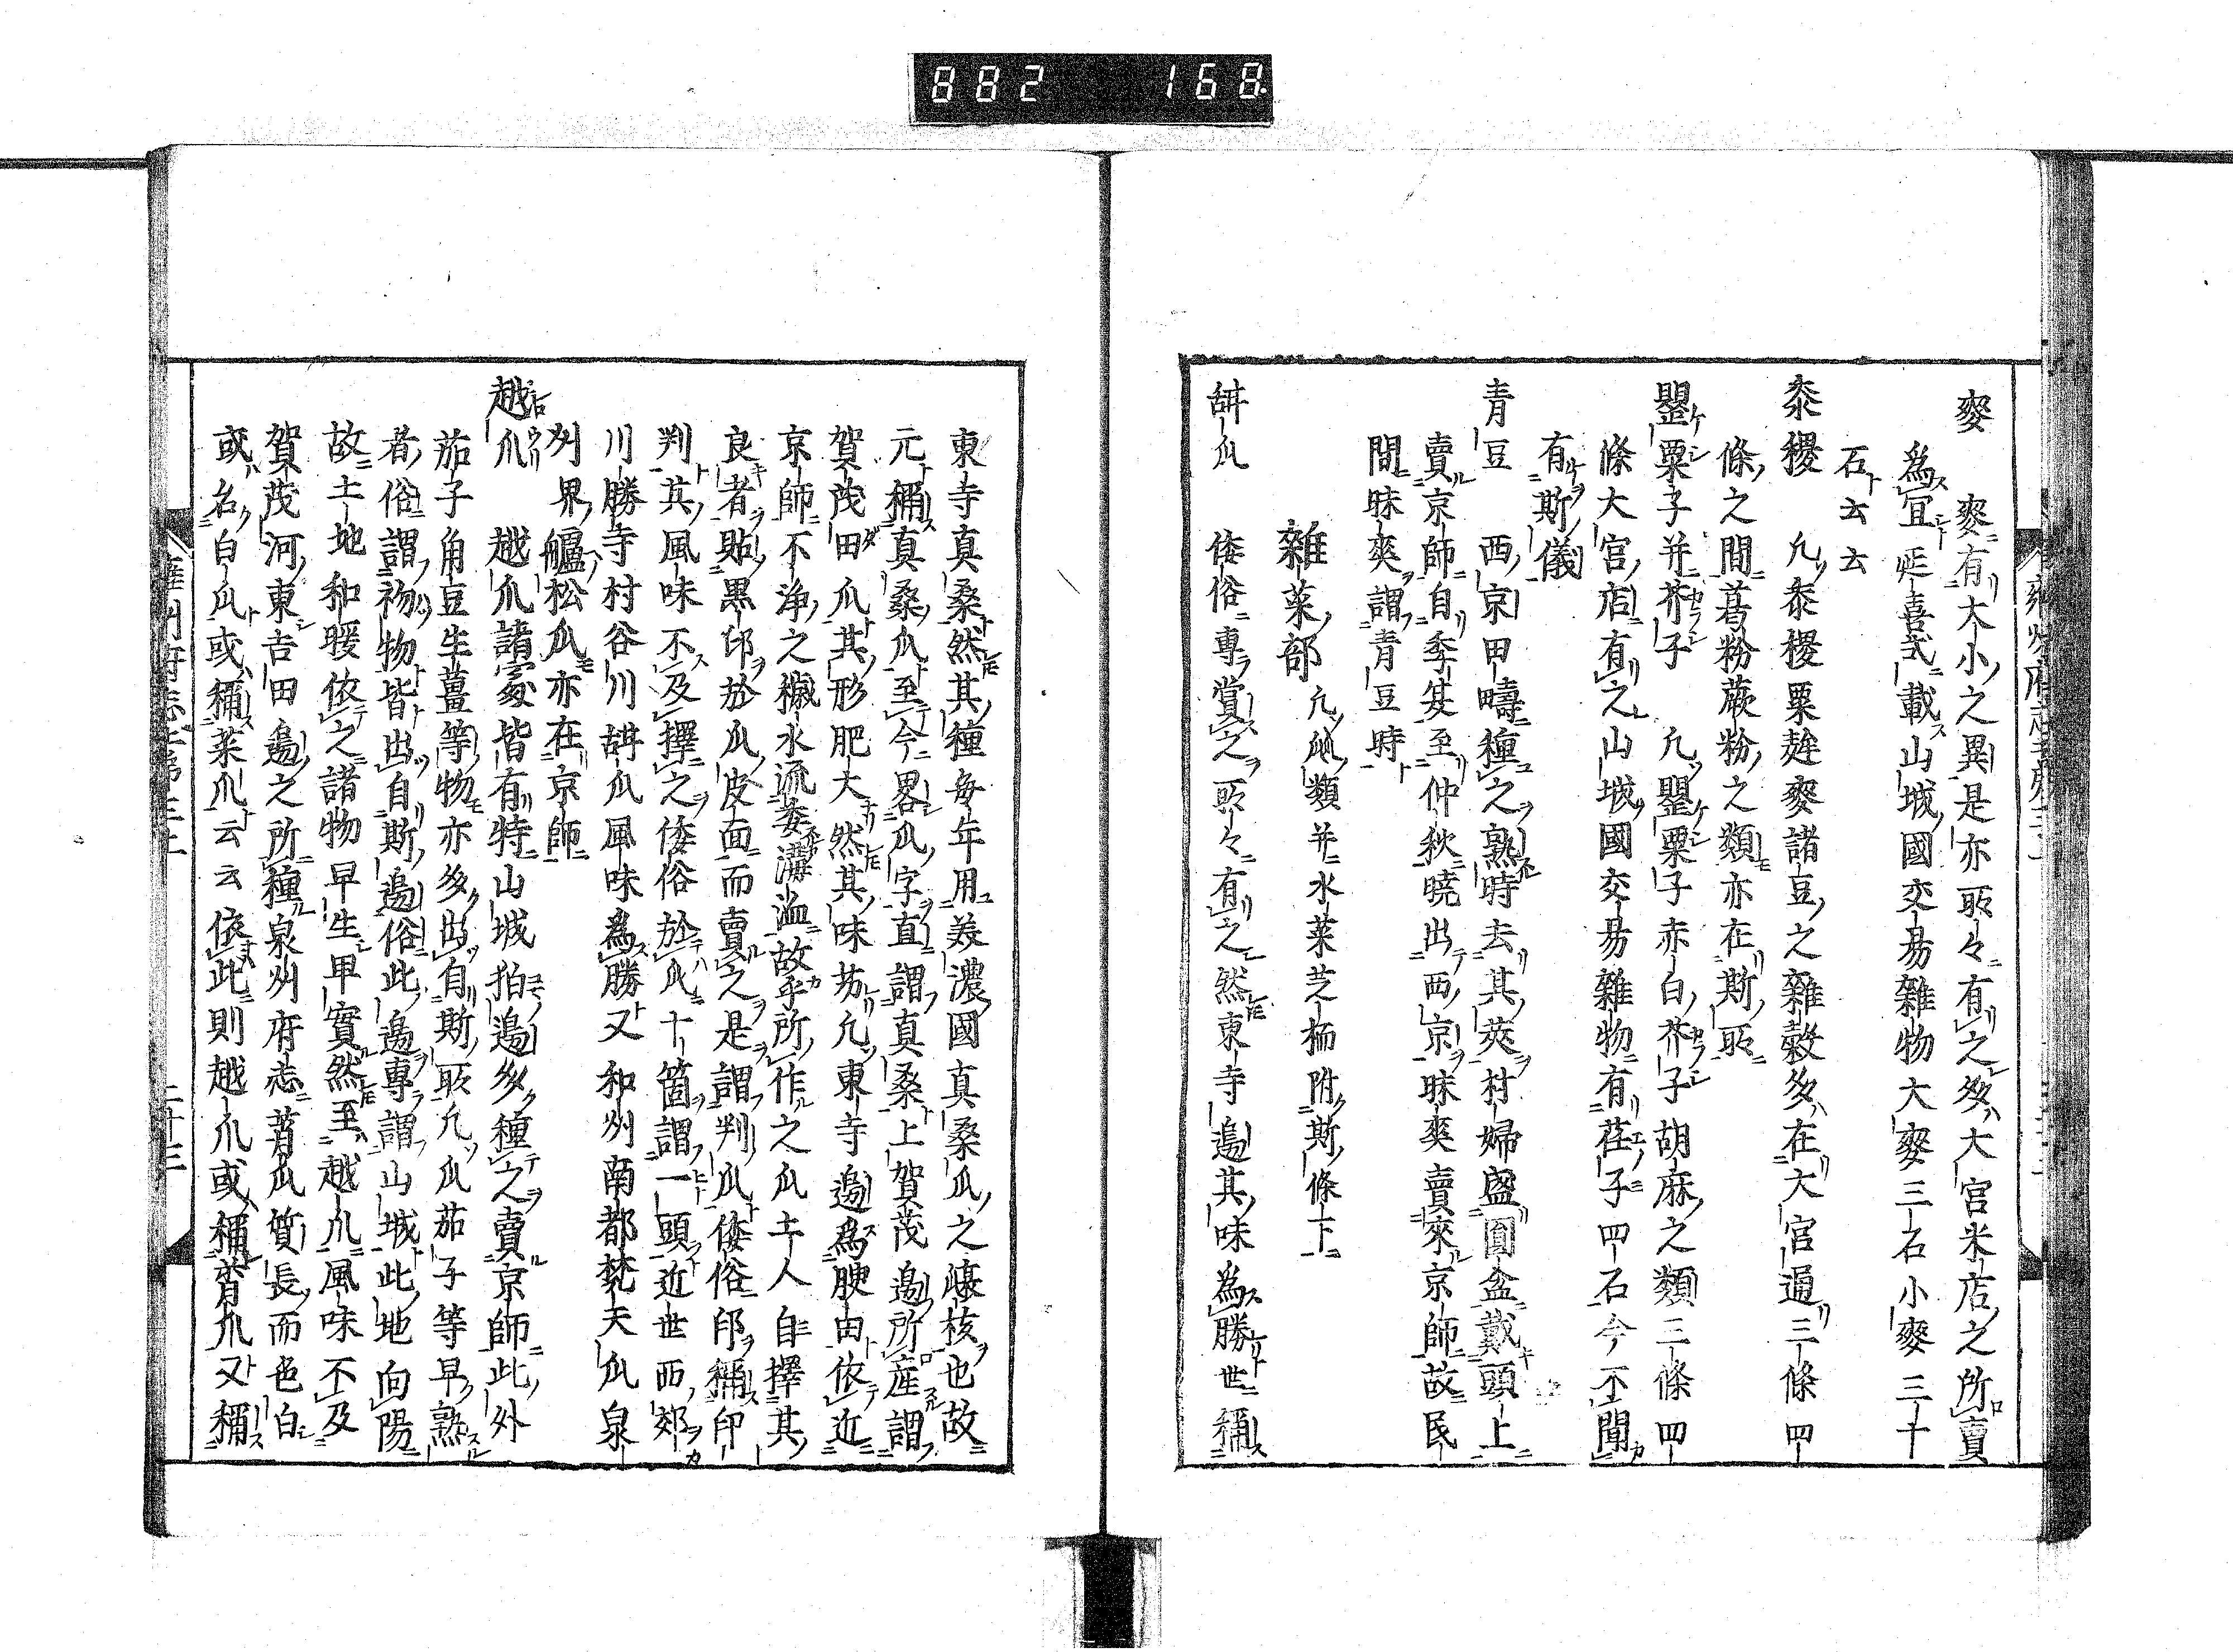 882 168
麥 麥有大小之異是亦所々有之多大宮米店之所賣
爲宜延喜式載山城國交易雜物大麥三石小麥三十
石云云
黍稷 凡黍稷粟麰麥諸豆之雜穀多在大宮通三條四
條之間葛粉蕨粉之類亦在斯所
罌粟子并芥子 凡罌粟子赤白芥子胡麻之類三條四
條大宮店有之山城國交易雜物有荏子四石今不聞
有斯儀
青豆 西京田疇種之熟時去其莢村婦盛圓盆戴頭上
賣京師自季夏至仲秋曉出西京昧爽賣來京師故民
間昧爽謂青豆時
雜菜部 凡瓜類并水菜芝栭附斯條下
甜瓜 倭俗專賞之所々有之然東寺邊其味爲勝世稱
東寺真桑然其種毎年用美濃國真桑瓜之瓤核也故
元稱真桑瓜至今畧瓜字直謂真桑上賀茂邊所産謂
賀茂田瓜其形肥大然其味劣凡東寺邊爲腴由依近
京師不淨之穢水流委溝洫故乎所作之瓜土人自擇其
良者貼黒印於瓜皮面而賣之是謂判瓜倭俗印稱印
判其風味不及擇之倭俗於瓜十箇謂一頭近世西郊
川勝寺村谷川甜瓜風味爲勝又和州南都梵天瓜泉
州界艫松瓜亦在京師
越瓜 越瓜諸家皆有特山城狛邊多種之賣京師此外
茄子角豆生薑等物亦多出自斯所凡瓜茄子等早熟
者俗謂初物皆出自斯邊俗此邊專謂山城此地向陽
故土地和暖依之諸物早生早實然至越瓜風味不及
賀茂河東吉田邊之所種泉州府志菁瓜質長而色白
或名白瓜或稱菜瓜云云依此則越瓜或稱菁瓜又稱